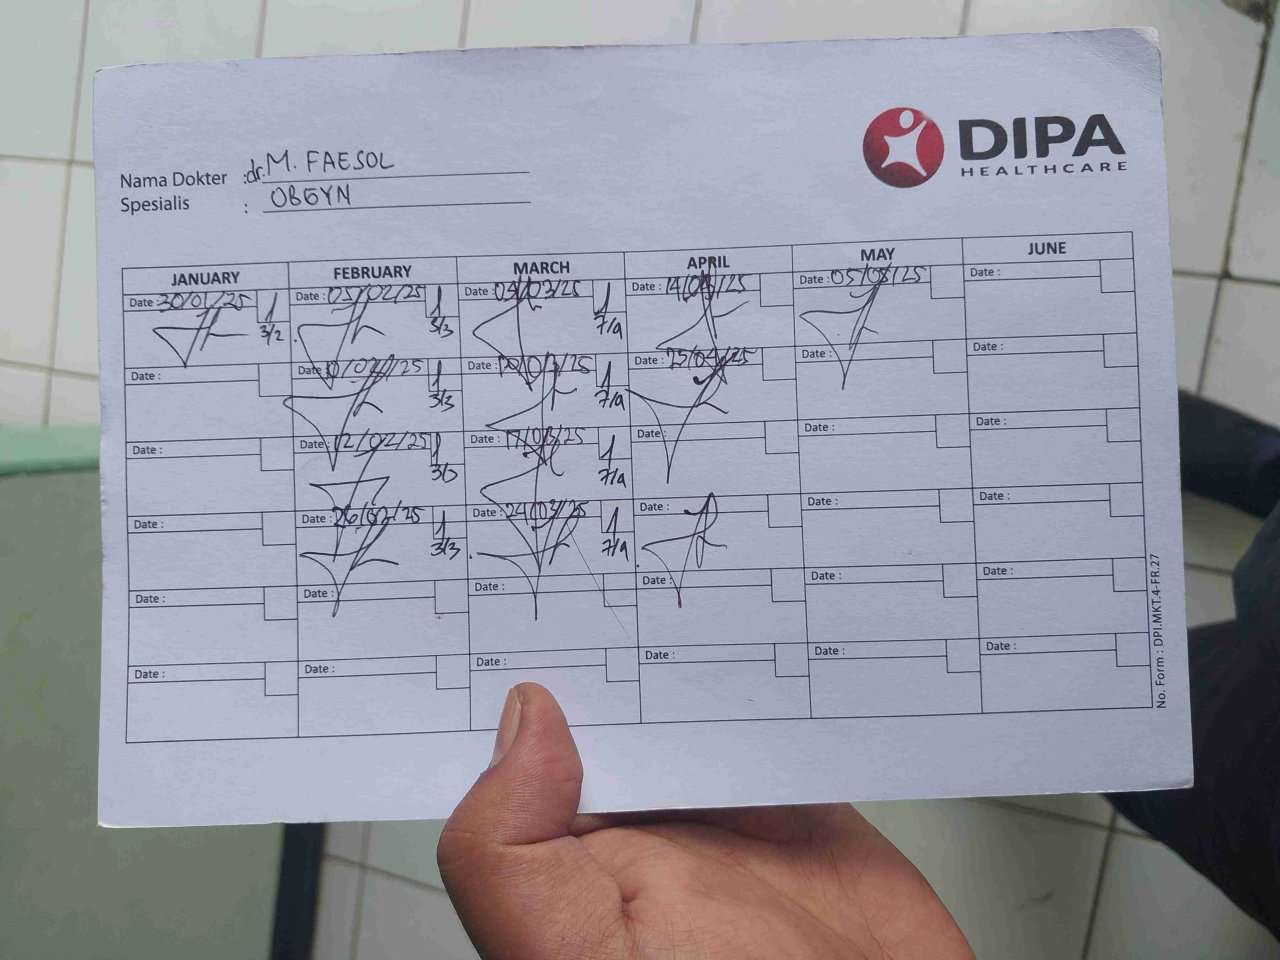 DIPA
HEALTHCARE
Nama Dokter : dr. M. FAESOL
Spesialis : OBGYN
JANUARY FEBRUARY MARCH APRIL MAY JUNE
Date : 30/01/25 1 Date : 05/02/25 1 Date : 03/03/25 1 Date : 14/04/25 Date : 05/05/25 Date :
3/2 3/3 7/a
Date : Date : /02/25 1 Date : /25 1 Date : 25/04/25 Date : Date :
3/3 7/a
Date : Date : 12/02/25 1 Date : 17/03/25 1 Date : Date : Date :
7/a
Date : Date : 26/02/25 1 Date : 24/03/25 1 Date : Date : Date :
3/3 7/a
Date : Date : Date : Date : Date : Date :
Date : Date : Date : Date : Date : Date :
No. Form : DPI.MKT.4-FR.27